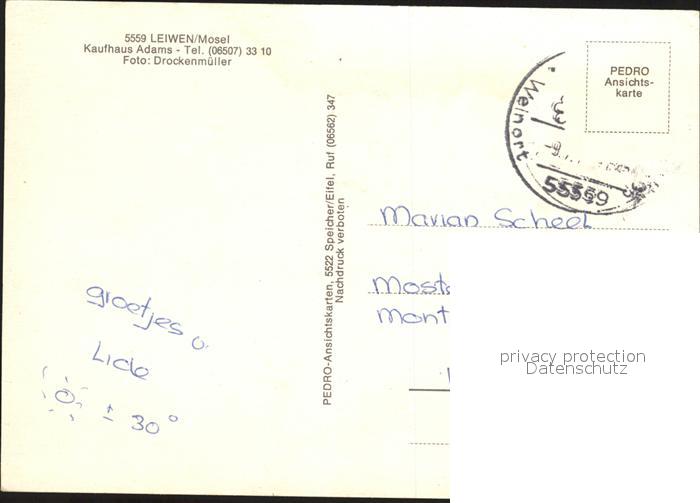 5559 LEIWEN/Mosel
Kaufhaus Adams - Tel. (06507) 33 10
Foto: Drockenmüller
PEDRO
Ansichts-
karte
Weinort
5559
PEDRO-Ansichtskarten, 5522 Speicher/Eifel, Ruf (06562) 347
Nachdruck verboten
Marian Scheel
Mont
groetjes
Lide
± 30°
privacy protection
Datenschutz